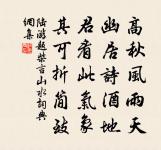 高秋風雨天
幽居詩酒地
君看此氣象
其可折簡致
陸游題柴言山水詞典
網集